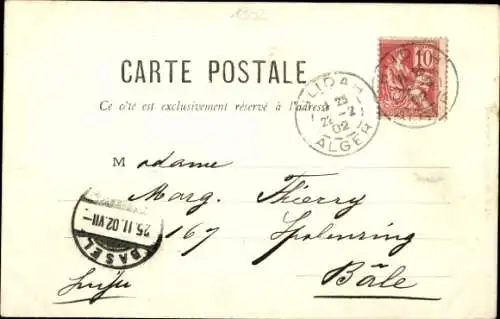 1902
CARTE POSTALE
Ce côté est exclusivement réservé à l'adresse
BLIDAH
23
-2
02
ALGER
10
Madame
Marg. Thierry
167 Spalenring
Bâle
Suisse
25.II.02.VII-
BASEL